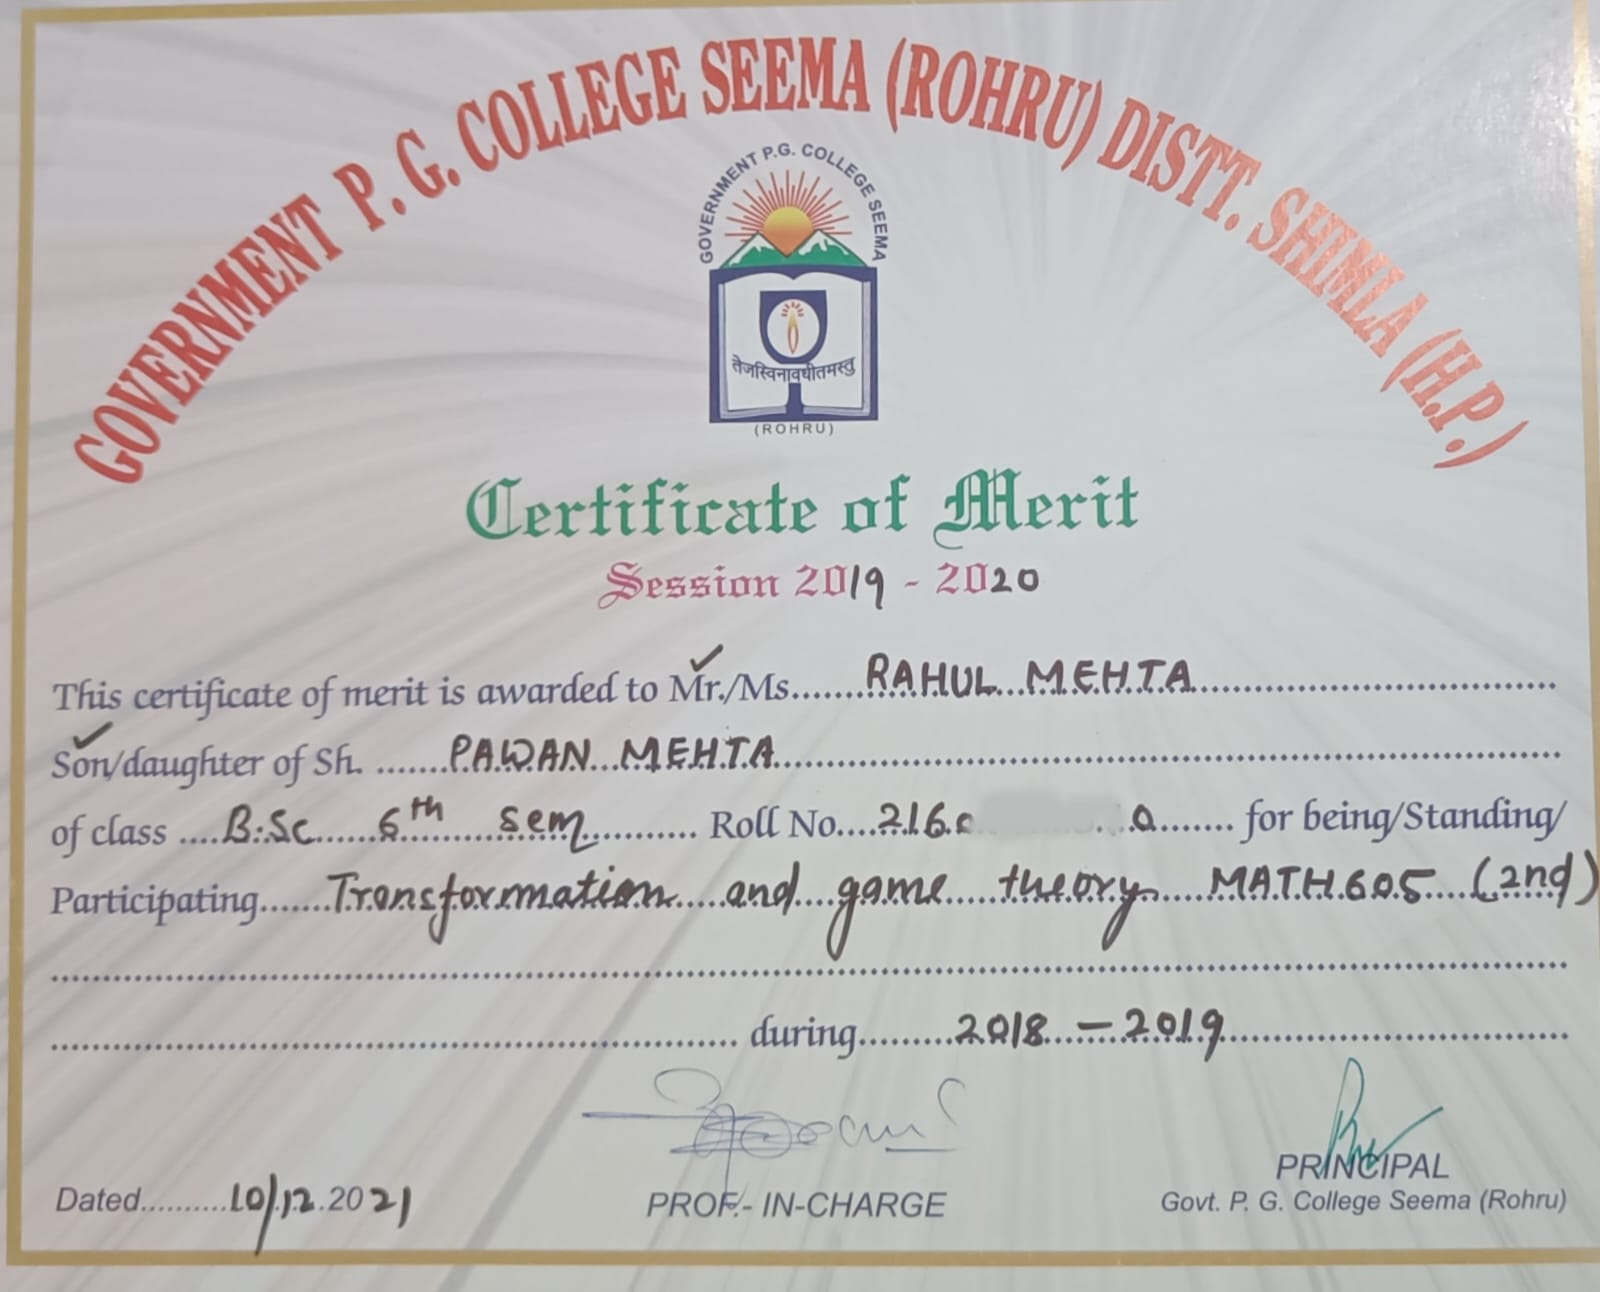 GOVERNMENT P. G. COLLEGE SEEMA (ROHRU) DISTT. SHIMLA (H.P.)
GOVERNMENT P.G. COLLEGE SEEMA
तेजस्विनावधीतमस्तु
(ROHRU)
Certificate of Merit
Session 2019 - 2020
This certificate of merit is awarded to Mr./Ms. RAHUL MEHTA
Son/daughter of Sh. PAWAN MEHTA
of class B.Sc 6th sem Roll No. 2160 0 for being/Standing/
Participating Transformation and game theory MATH 605 (2nd)
during 2018 - 2019
Dated 10/12.2021
PROF.- IN-CHARGE
PRINCIPAL
Govt. P. G. College Seema (Rohru)